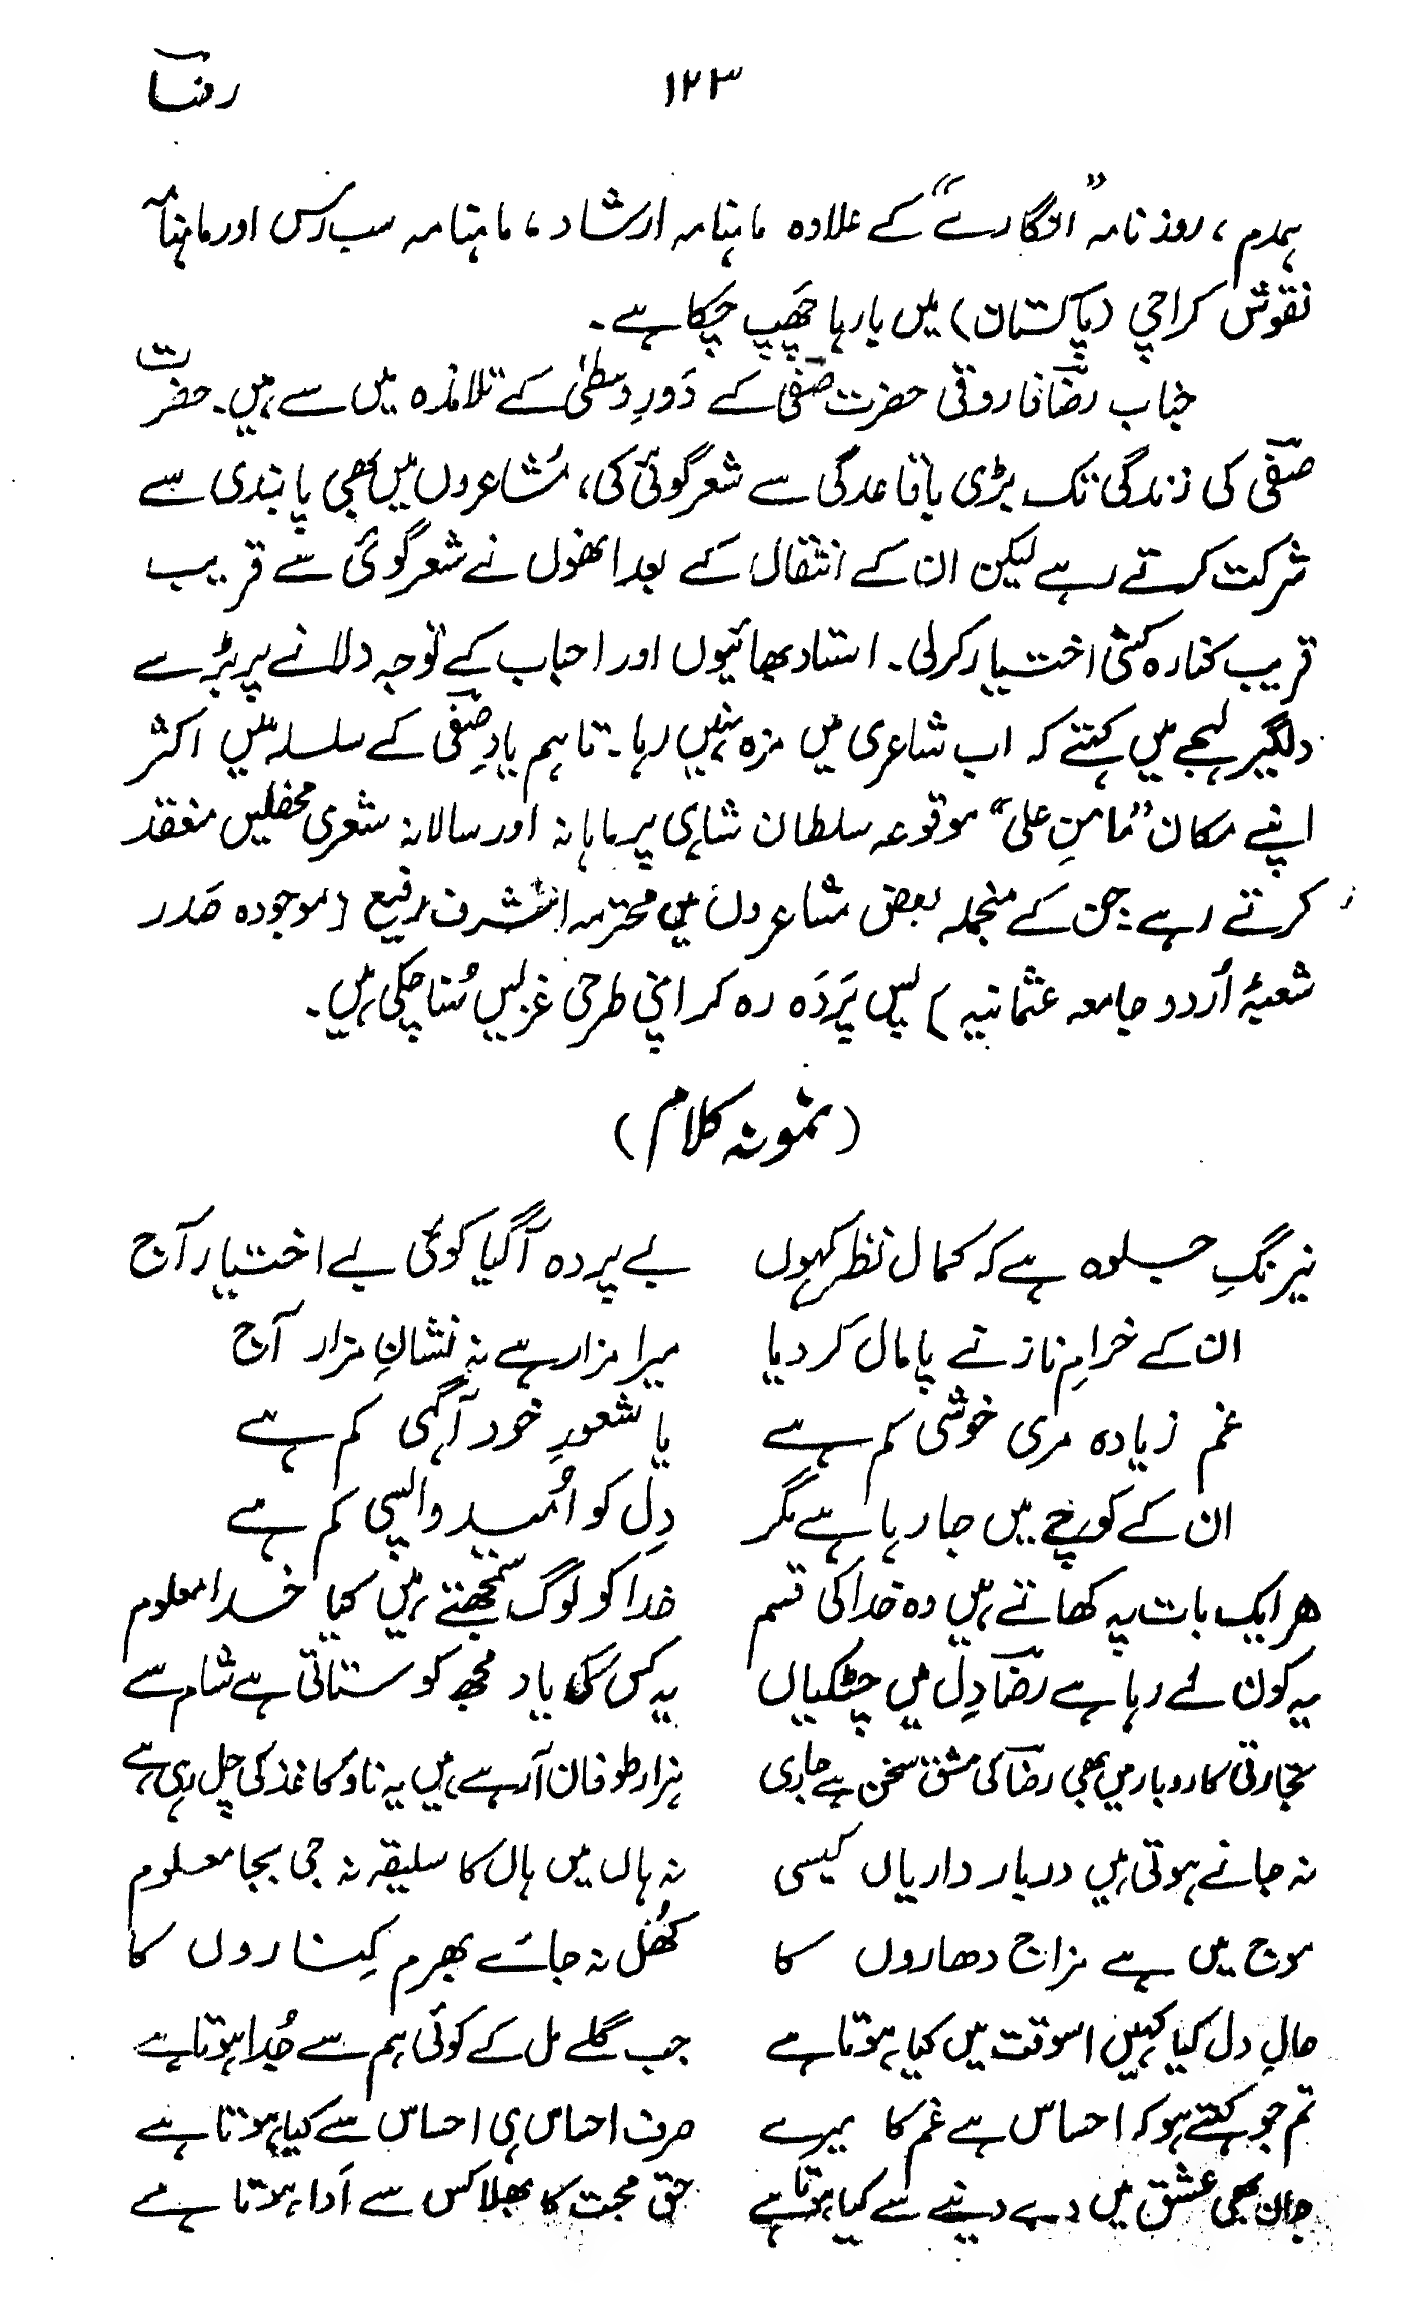 ۱۲۳ رضاؔ
ہمدم، روزنامہ "انگارے" کے علاوہ ماہنامہ ارشاد، ماہنامہ سب رس اور ماہنامہ
نقوش کراچی (پاکستان) میں بارہا چَھپ چکا ہے۔
جناب رضاؔ فاروقی حضرت صفیؔ کے دَورِ وسطیٰ کے تلامذہ میں سے ہیں۔ حضرت
صفیؔ کی زندگی تک بڑی باقاعدگی سے شعر گوئی کی، مُشاعروں میں بھی پابندی سے
شرکت کرتے رہے لیکن ان کے انتقال کے بعد انھوں نے شعر گوئی سے قریب
قریب کنارہ کشی اختیار کرلی۔ استاد بھائیوں اور احباب کے توجہ دلانے پر بڑے
دلگیر لہجے میں کہتے کہ اب شاعری میں مزہ نہیں رہا۔ تاہم یادِ صفیؔ کے سلسلہ میں اکثر
اپنے مکان "مُامنِ علی" موقوعہ سلطان شاہی پر ماہانہ اور سالانہ شعری محفلیں منعقد
کرتے رہے جن کے منجملہ بعض مشاعروں میں محترمہ اشرف رفیع (موجودہ صَدر
شعبۂ اُردو جامعہ عثمانیہ) پسِ پَردَہ رہ کر اپنی طرحی غزلیں سُنا چکی ہیں۔
(نمونہ کلام)
نیرنگِ جلوہ ہے کہ کمال نظر کہوں بے پردہ آگیا کوئی بے اختیار آج
ان کے خرامِ ناز نے پامال کر دیا میرا مزار ہے نہ نشانِ مزار آج
غم زیادہ مری خوشی کم ہے یا شعورِ خود آگہی کم ہے
ان کے کوچے میں جا رہا ہے مگر دِل کو اُمید واپسی کم ہے
ہر ایک بات پہ کھاتے ہیں وہ خدا کی قسم خدا کو لوگ سمجھتے ہیں کیا خدا معلوم
یہ کون لے رہا ہے رضاؔ دِل میں چٹکیاں یہ کس کی یاد مجھ کو ستاتی ہے شام سے
تجارتی کاروبار میں بھی رضاؔ کی مشق سخن ہے جاری ہزار طوفان آرہے ہیں یہ ناؤ کاغذ کی چل رہی ہے
نہ جانے ہوتی ہیں دربار داریاں کیسی نہ ہاں میں ہاں کا سلیقہ نہ جی بجا معلوم
موج میں ہے مزاج دھاروں کا کھُل نہ جائے بھرم کِناروں کا
حالِ دل کیا کہیں اسوقت میں کیا ہوتا ہے جب گلے مل کے کوئی ہم سے جُدا ہوتا ہے
تم جو کہتے ہو کہ احساس ہے غم کا میرے صرف احساس ہی احساس سے کیا ہوتا ہے
جان بھی عشق میں دے دینے سے کیا ہوتا ہے حق محبت کا بھلا کس سے اَدا ہوتا ہے